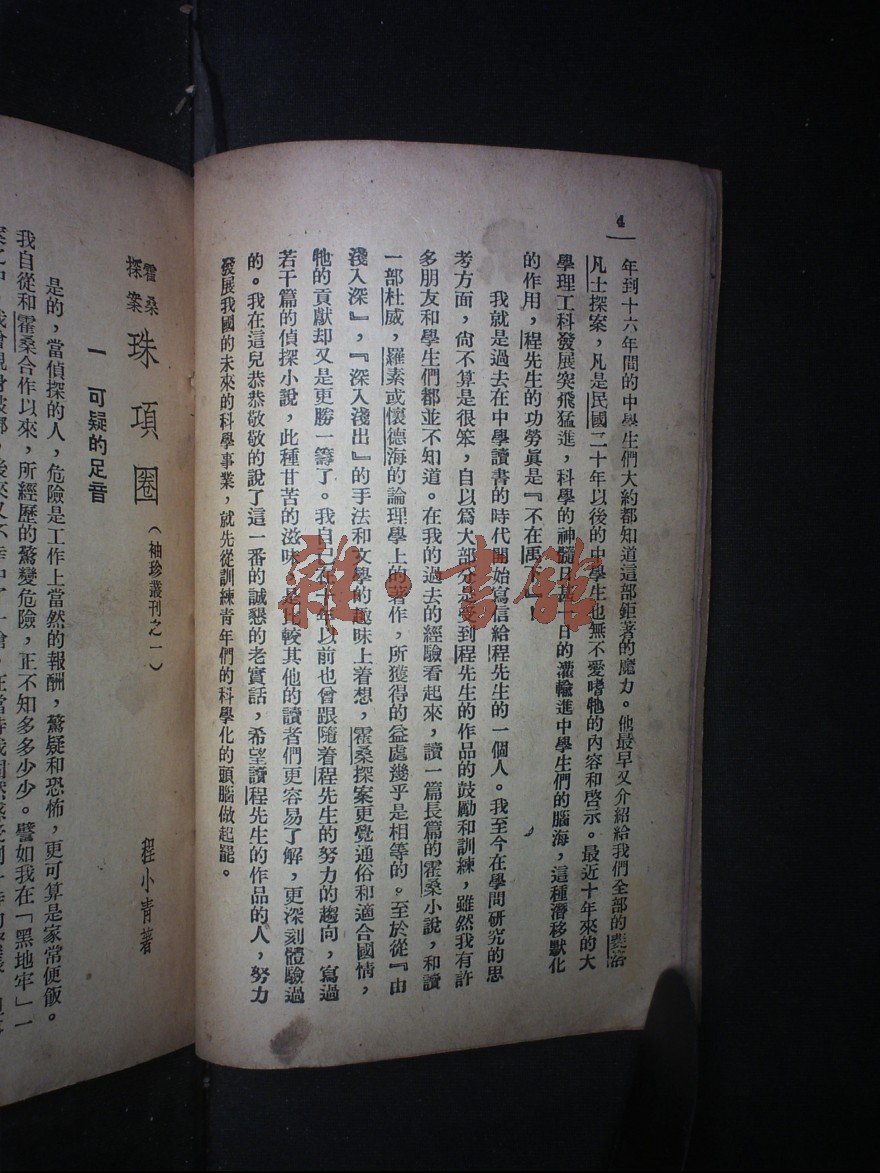 4
年到十六年間的中學生們大約都知道這部鉅著的魔力。他最早又介紹給我們全部的斐洛
凡士探案，凡是民國二十年以後的中學生也無不愛嗜牠的內容和啓示。最近十年來的大
學理工科發展突飛猛進，科學的神髓以甚十日的灌輸進中學生們的腦海，這種潛移默化
的作用，程先生的功勞眞是『不在禹下』！
我就是過去在中學讀書的時代開始寫信給程先生的一個人。我至今在學問研究的思
考方面，尙不算是很笨，自以爲大部分是受到程先生的作品的鼓勵和訓練，雖然我有許
多朋友和學生們都並不知道。在我的過去的經驗看起來，讀一篇長篇的霍桑小說，和讀
一部杜威，羅素或懷德海的論理學上的著作，所獲得的益處幾乎是相等的。至於從『由
淺入深』，『深入淺出』的手法和文學的趣味上着想，霍桑探案更覺通俗和適合國情，
牠的貢獻却又是更勝一籌了。我自己在十年以前也曾跟隨着程先生的努力的趨向，寫過
若干篇的偵探小說，此種甘苦的滋味，是比較其他的讀者們更容易了解，更深刻體驗過
的。我在這兒恭恭敬敬的說了這一番的誠懇的老實話，希望讀程先生的作品的人，努力
發展我國的未來的科學事業，就先從訓練青年們的科學化的頭腦做起罷。
霍桑探案 珠項圈（袖珍叢刊之一） 程小青著
一 可疑的足音
是的，當偵探的人，危險是工作上當然的報酬，驚疑和恐怖，更可算是家常便飯。
我自從和霍桑合作以來，所經歷的驚變危險，正不知多多少少。譬如我在「黑地牢」一
雜·書館